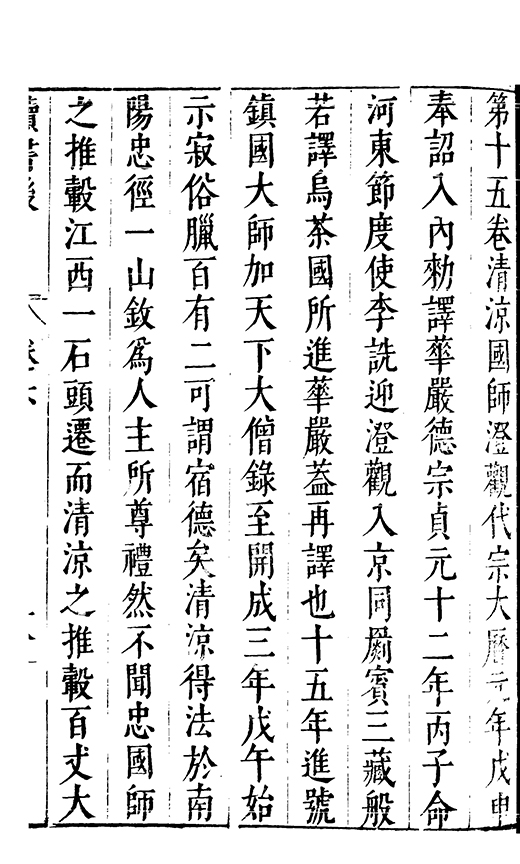 第十五卷清涼國師澄觀代宗大曆元年戊申
奉詔入內勑譯華嚴德宗貞元十二年丙子命
河東節度使李詵迎澄觀入京同罽賓三藏般
若譯烏茶國所進華嚴葢再譯也十五年進號
鎮國大師加天下大僧錄至開成三年戊午始
示寂俗臘百有二可謂宿德矣清涼得法於南
陽忠徑一山欽爲人主所尊禮然不聞忠國師
之推轂江西一石頭遷而清涼之推轂百丈大
讀書後
卷六